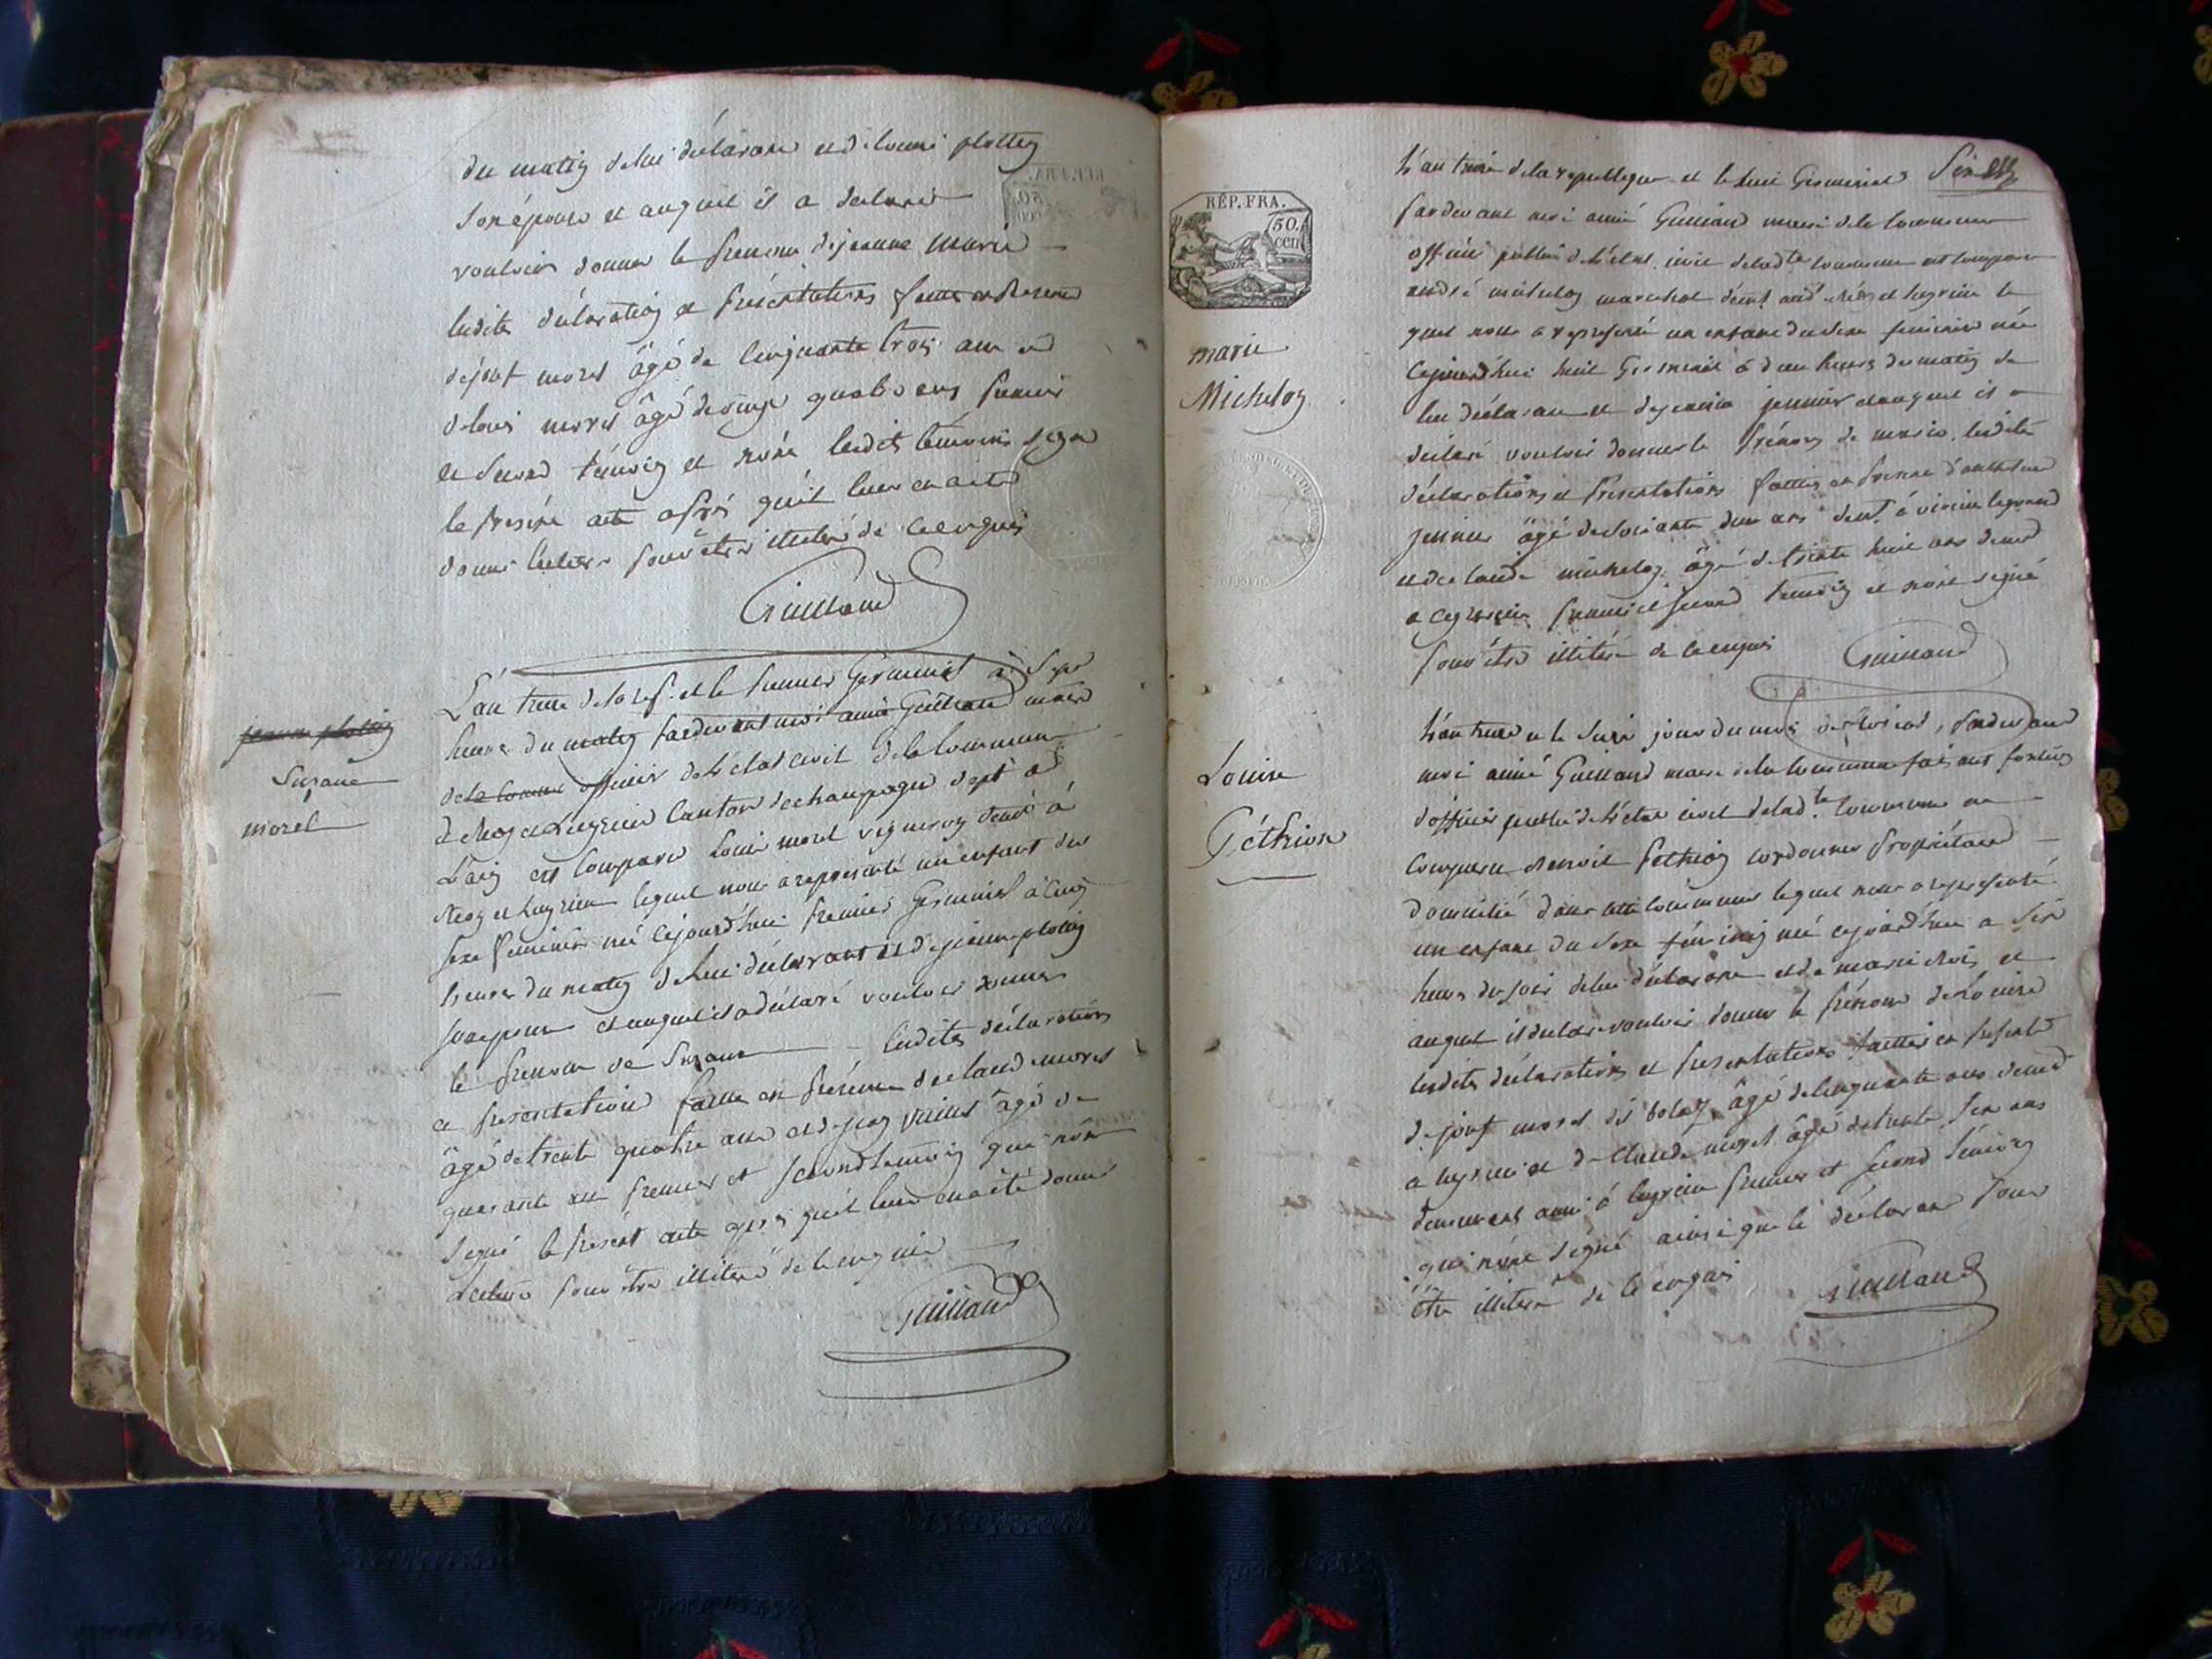 du matin de lui déclarant et de louise plottin
son épouse et auquel il a déclaré
vouloir donner le prenom de jeanne marie
lesdites déclaration et présentations faites en présence
de josef morel âgé de cinquante trois ans et
de louis morel âgé de vingt quatre ans premier
et second témoin et nonts lesdits témoins signé
le present acte après qu'il leur en a été
donné lecture pour être illitéré de ce enquis
Guilland
L'an treize de la rep. et le premier Germinal à sept
heures du matin pardevant moi aimé Guilland maire
de la comme officier de l'état civil de la commune
canton de champagne dept de
L'ain est comparu Louis morel vigneron demt à
lequel nous a représenté un enfant du
sexe feminin né cejourd'hui premier Germinal à cinq
heures du matin de lui déclarant et de jeanne plottin
son epouse et auquel il a déclaré vouloir donner
le prenom de Suzane lesdites déclarations
et presentations faittes en présence de claude morel
âgé de trente quatre ans et de
quarante ans premier et second temoin qui n'ont
signé le présent acte après qu'il leur en a été donné
Lecture pour être illitéré de ce enquis
Guilland
jeanne plottin
Suzane
morel
RÉP. FRA.
50
cen
L'an treize de la republique et le huit Germinal
Six
pardevant moi aimé Guilland maire de la commune
officier public de l'état civil de lad.te commune est comparu
andré michelon marechal
quel nous a représenté un enfant du sexe feminin née
cejourd'hui huit Germinal à deux heures du matin de
lui déclarant et de et auquel il a
déclaré vouloir donner le prénom de marie lesdites
déclarations et presentations faittes en presence d'anthelme
âgé de soixante deux ans demt à virieu le grand
et de claude michelon âgé de trente huit ans demt
a ceyzerieu premier et second temoin et nont signé
pour être illitéré de ce enquis
Guilland
marie
Michelon
L'an treize et le jour du mois de floréal, pardevant
moi aimé Guilland maire de la commune faisant fonction
d'officier public de l'état civil de lad.te commune est
comparu benoit pethion cordonnier propriétaire
domicilié dans cette commune lequel nous a représenté
un enfant du sexe féminin né cejourd'hui a six
heures du soir de lui déclarant et de marie et
auquel il déclare vouloir donner le prénom de Louise
lesdites déclarations et presentations faittes en présence
de josef morel dit âgé de cinquante ans demt
a et de claude morel âgé de trente six ans
demeurant aussi à premier et second témoin
qui n'ont signé ainsi que le déclarant pour
être illitéré de ce enquis
Guilland
Louise
Péthion